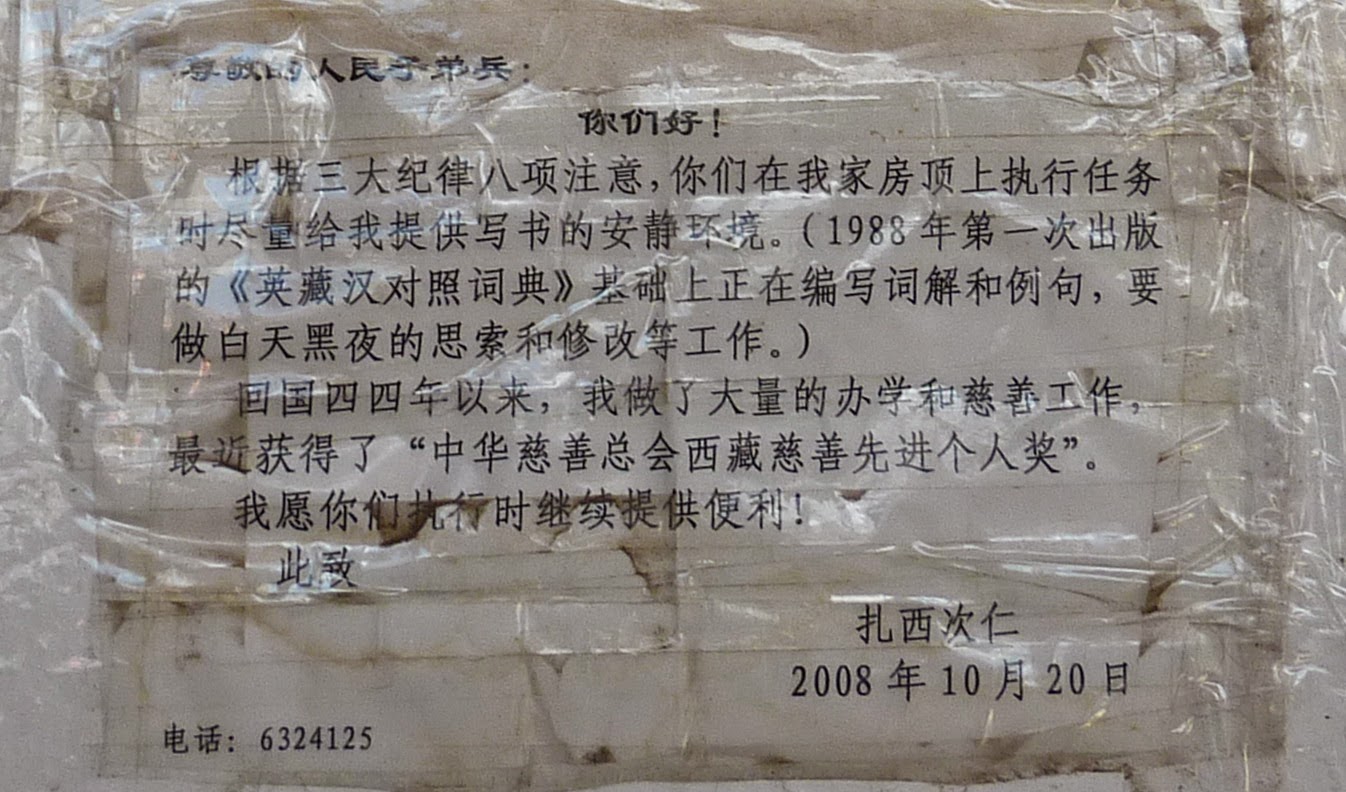 尊敬的人民子弟兵：
你们好！
根据三大纪律八项注意，你们在我家房顶上执行任务
时尽量给我提供写书的安静环境。（1988年第一次出版
的《英藏汉对照词典》基础上正在编写词解和例句，要
做白天黑夜的思索和修改等工作。）
回国四四年以来，我做了大量的办学和慈善工作，
最近获得了“中华慈善总会西藏慈善先进个人奖”。
我愿你们执行时继续提供便利！
此致
扎西次仁
2008年10月20日
电话：6324125